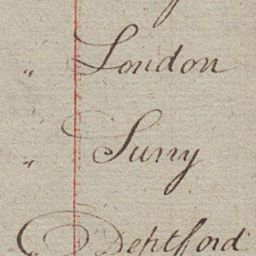 " London
" Surry
Deptford